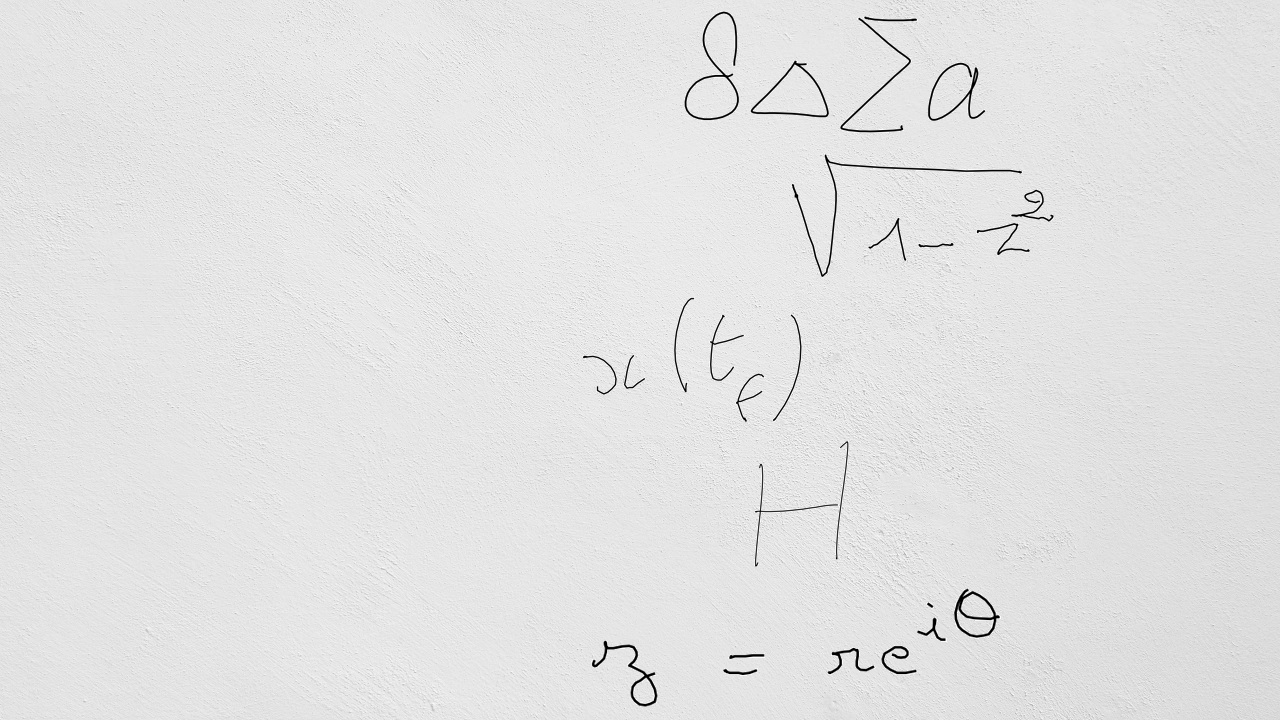 δΔΣa
√(1-z²)
x(t_f)
H
z = re^{iθ}